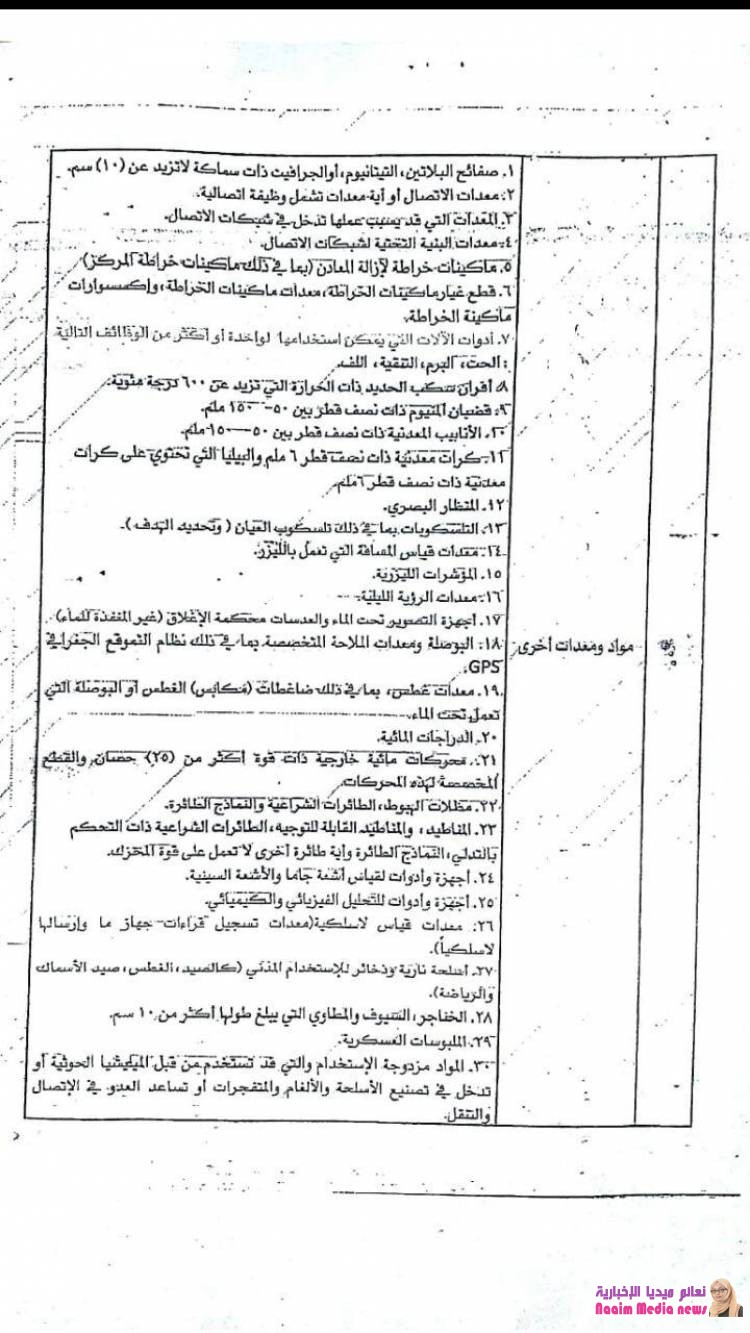 ١. صفائح البلاتين، التيتانيوم، أو الجرافيت ذات سماكة لاتزيد عن (١٠) سم.
٢. معدات الاتصال أو أية معدات تشمل وظيفة اتصالية.
٣. المعدات التي قد يصبت عملها تدخل في شبكات الاتصال.
٤. معدات البنية التحتية لشبكات الاتصال.
٥. ماكينات خراطة لإزالة المعادن (بما في ذلك ماكينات خراطة المركز)
٦. قطع غيار ماكينات الخراطة، معدات ماكينات الخراطة، وإكسسوارات
ماكينة الخراطة.
٧. أدوات الآلات التي يمكن استخدامها لواحدة أو أكثر من الوظائف التالية
: الحت، البرم، التنقية، اللف.
٨. أفران سكب الحديد ذات الحرارة التي تزيد عن ٦٠٠ درجة مئوية.
٩. قضبان المنيوم ذات نصف قطر بين ٥٠-١٥٠ ملم.
١٠. الأنابيب المعدنية ذات نصف قطر بين ٥٠-١٥٠ ملم.
١١. كرات معدنية ذات نصف قطر ٦ ملم والبيليا التي تحتوي على كرات
معدنية ذات نصف قطر ٦ ملم.
١٢. المنظار البصري.
١٣. التلسكوبات بما في ذلك تلسكوب العيان ( وتحديد الهدف ).
١٤. معدات قياس المسافة التي تعمل بالليزر.
١٥. المؤشرات الليزرية.
١٦. معدات الرؤية الليلية.
١٧. أجهزة التصوير تحت الماء والعدسات محكمة الإغلاق (غير المنفذة للماء)
١٨. البوصلة ومعدات الملاحة المتخصصة بما في ذلك نظام التموقع الجغرافي
GPS.
مواد ومعدات أخرى
١٩. معدات غطس، بما في ذلك ضاغطات (مكابس) الغطس أو البوصلة التي
تعمل تحت الماء.
٢٠. الدراجات المائية.
٢١. محركات مائية خارجية ذات قوة أكثر من (٢٥) حصان والقطع
المخصصة لهذه المحركات
٢٢. مظلات الهبوط، الطائرات الشراعية والنماذج الطائرة.
٢٣. المناطيد، والمناطيد القابلة للتوجيه، الطائرات الشراعية ذات التحكم
بالتدلي، النماذج الطائرة وأية طائرة أخرى لا تعمل على قوة المحرك.
٢٤. أجهزة وأدوات لقياس أشعة جاما والأشعة السينية.
٢٥. أجهزة وأدوات للتحليل الفيزيائي والكيميائي.
٢٦. معدات قياس لاسلكية(معدات تسجيل قراءات جهاز ما وإرسالها
لاسلكياً).
٢٧. أسلحة نارية وذخائر للإستخدام المدني (كالصيد، الغطس، صيد الأسماك
والرياضة).
٢٨. الخناجر، السيوف والمطاوي التي يبلغ طولها أكثر من ١٠ سم.
٢٩. الملبوسات العسكرية.
٣٠. المواد مزدوجة الإستخدام والتي قد تستخدم من قبل الميليشيا الحوثية أو
تدخل في تصنيع الأسلحة والألغام والمتفجرات أو تساعد العدو في الإتصال
والتنقل.
نعائم ميديا الإخبارية
Naaim Media news